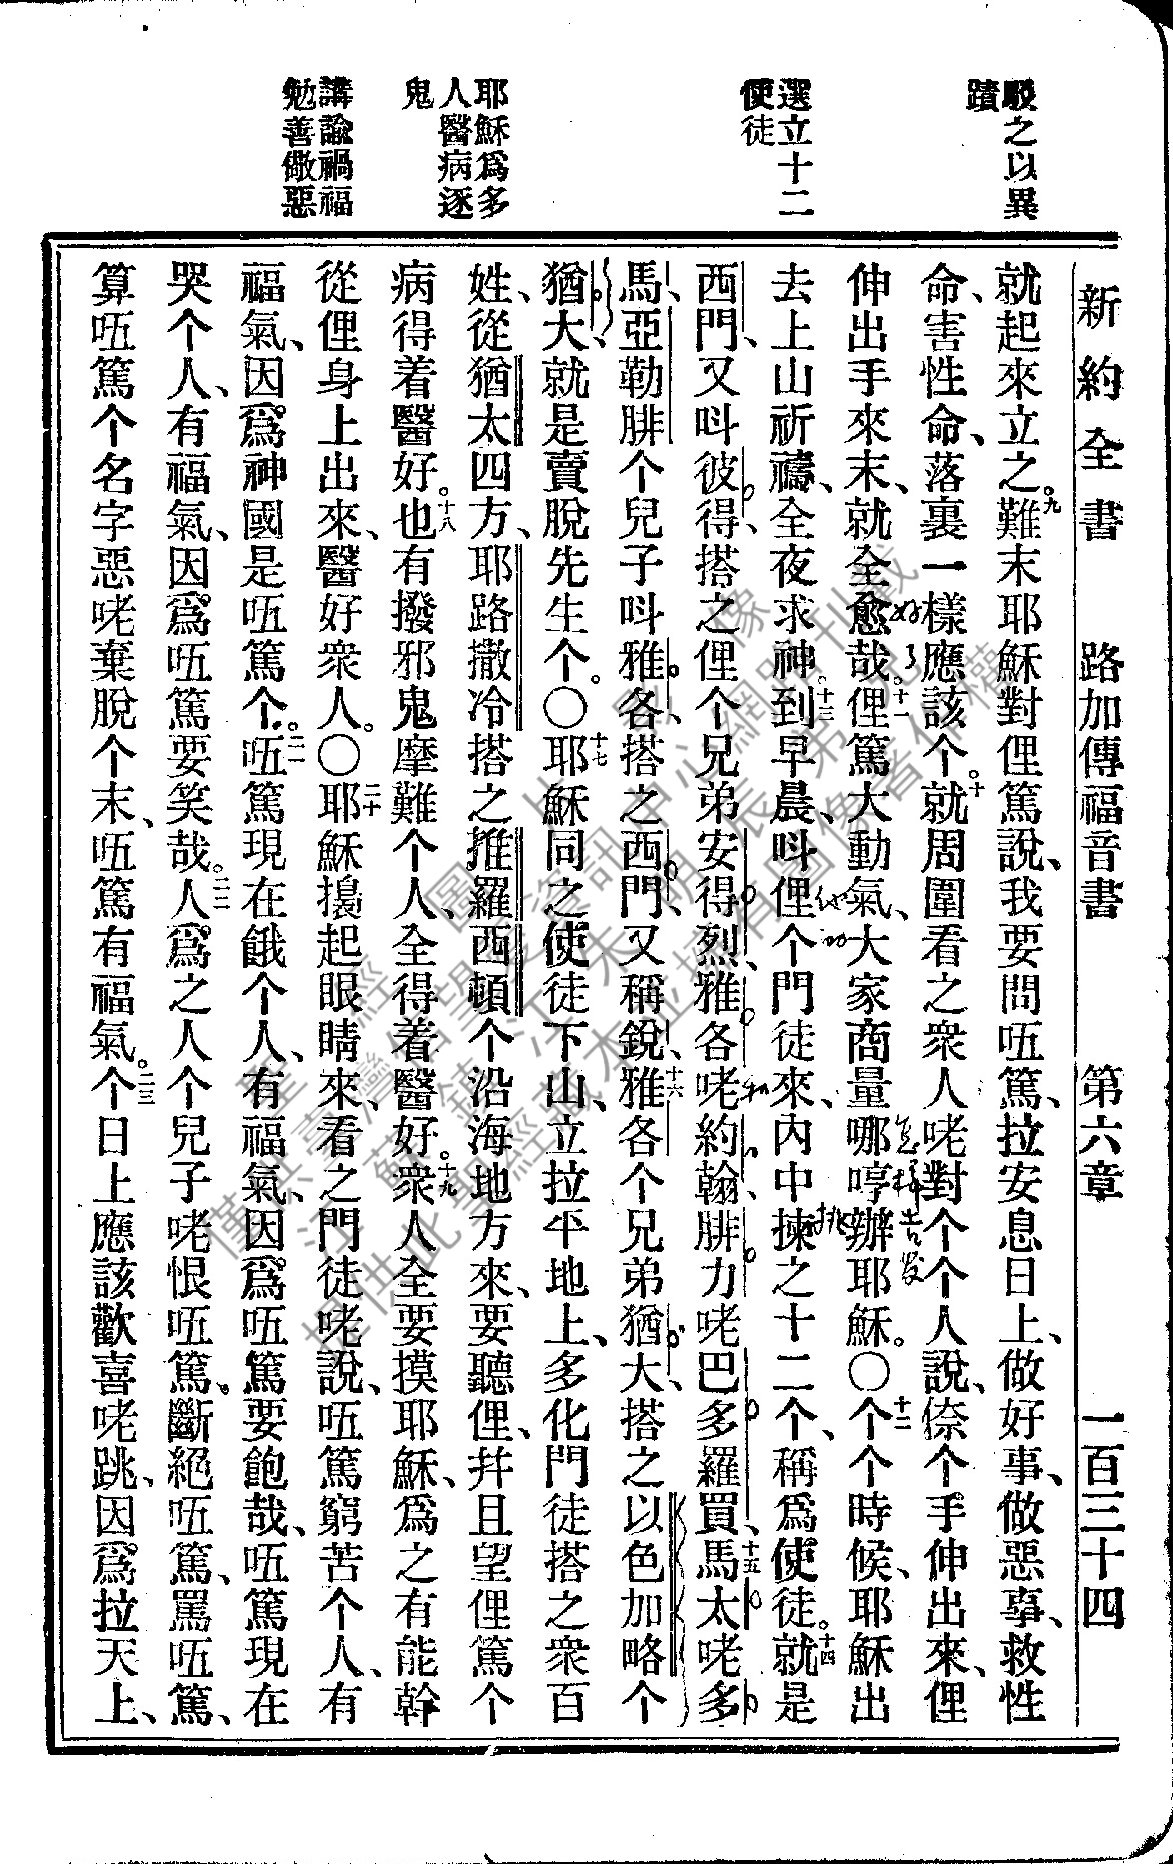 新約全書 路加傳福音書 第六章 一百三十四
駁之以異
蹟
選立十二
使徒
耶穌爲多
人醫病逐
鬼
講論禍福
勉善儆惡
就起來立之。九難末耶穌對俚篤說、我要問㕶篤、拉安息日上、做好事、做惡事、救性
命、害性命、落裏一樣應該个。十就周圍看之衆人咾對个个人說、倷个手伸出來、俚
伸出手來末、就全愈哉。十一俚篤大動氣、大家商量哪哼辦耶穌。〇十二个个時候、耶穌出
去上山祈禱、全夜求神。十三到早晨、呌俚个門徒來、內中揀之十二个、稱爲使徒。十四就是
西門、又呌彼得、搭之俚个兄弟安得烈、雅各咾約翰、腓力咾巴多羅買、十五馬太咾多
馬、亞勒腓个兒子呌雅各、搭之西門、又稱銳、十六雅各个兄弟猶大、搭之以色加略个
猶大、就是賣脫先生个。〇十七耶穌同之使徒下山、立拉平地上、多化門徒搭之衆百
姓、從猶太四方、耶路撒冷搭之推羅西頓个沿海地方來、要聽俚、幷且望俚篤个
病得着醫好。十八也有撥邪鬼摩難个人、全得着醫好。十九衆人全要摸耶穌、爲之有能幹
從俚身上出來、醫好衆人。〇二十耶穌擡起眼睛來、看之門徒咾說、㕶篤窮苦个人、有
福氣、因爲神國是㕶篤个。二一㕶篤現在餓个人、有福氣、因爲㕶篤要飽哉、㕶篤現在
哭个人、有福氣、因爲㕶篤要笑哉。二二人爲之人个兒子咾恨㕶篤、斷絕㕶篤、罵㕶篤、
算㕶篤个名字惡咾棄脫个末、㕶篤有福氣。二三个日上應該歡喜咾跳、因爲拉天上、